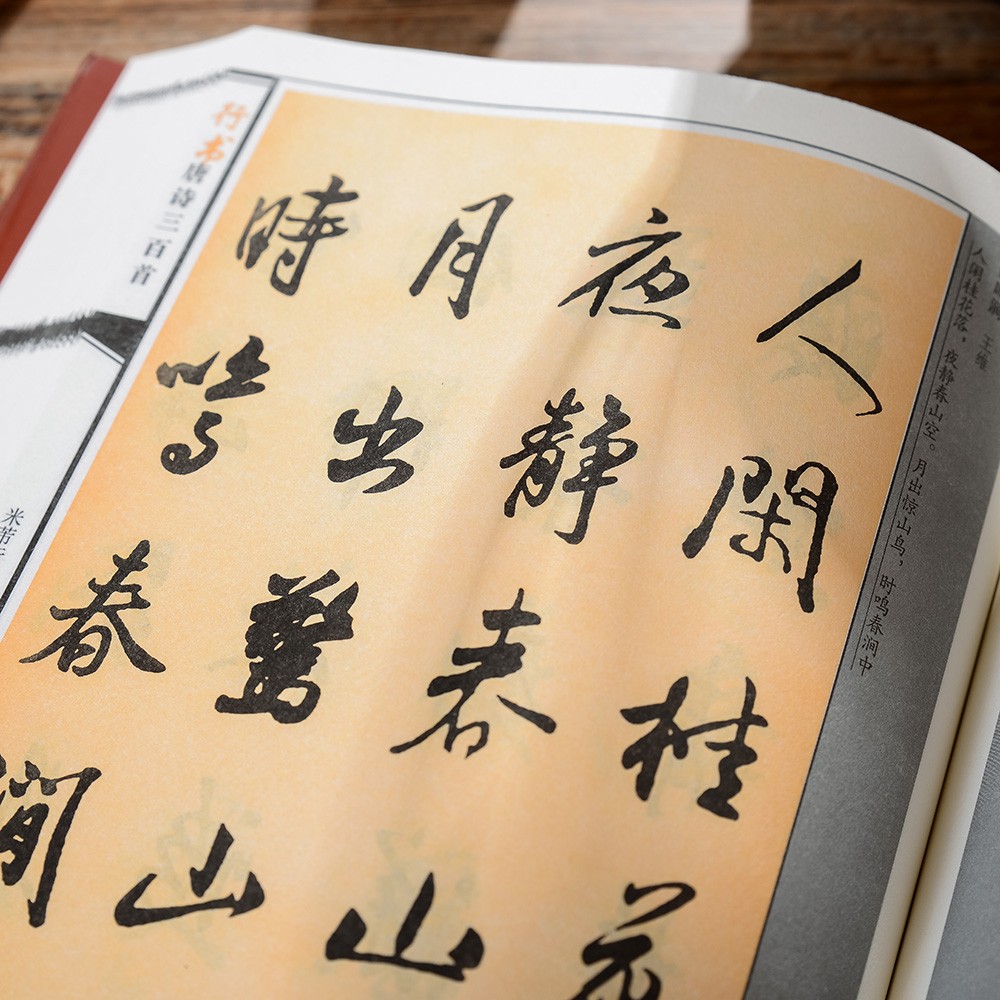 人閑桂花
夜静春山
月出驚山
時鳴春澗
行书唐诗三百首
王维
人闲桂花落,夜静春山空。月出惊山鸟,时鸣春涧中
米芾